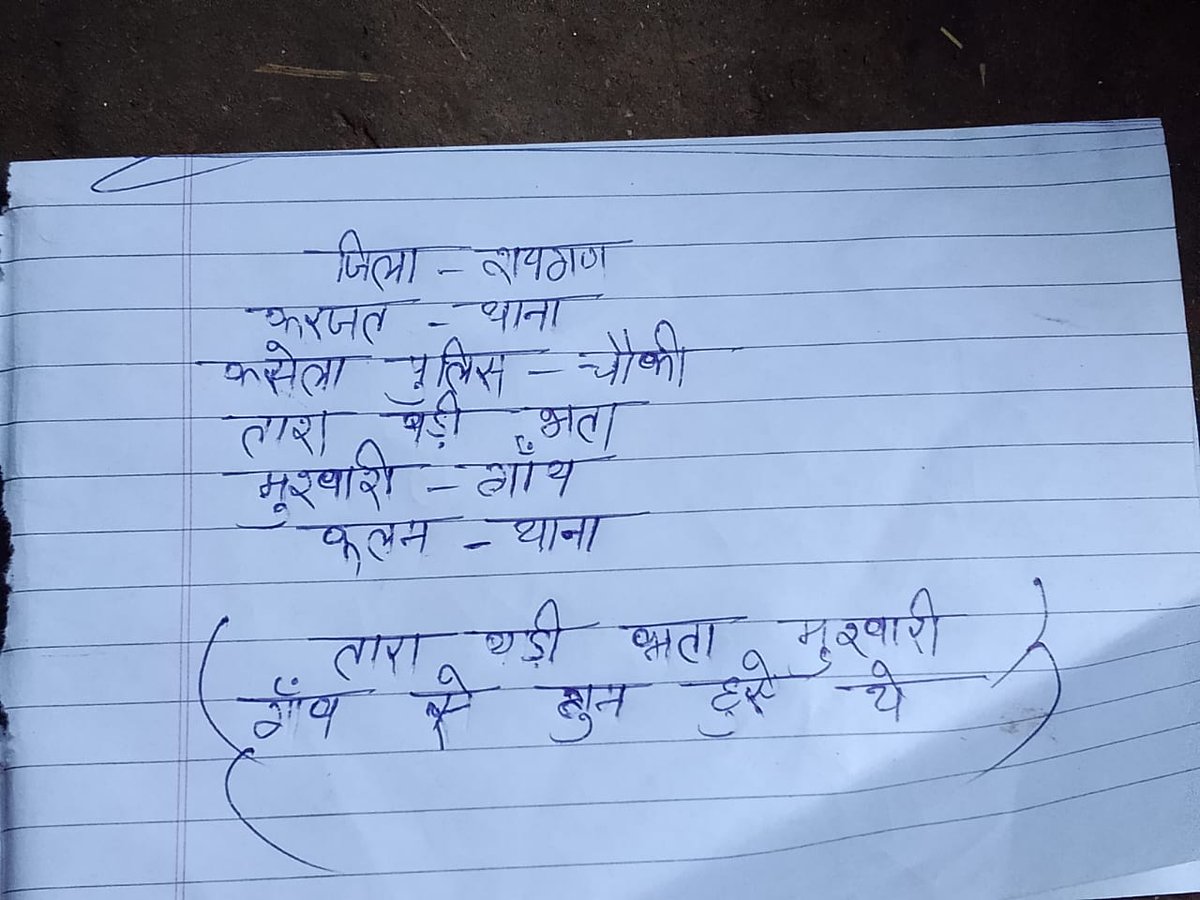 जिला - रायगण
करजत - थाना
कसेला पुलिस - चौकी
तारा बड़ी भता
मुरबारी - गाँव
कलम - थाना
तारा बड़ी भता मुरबारी
गाँव से गुन हुसे थे